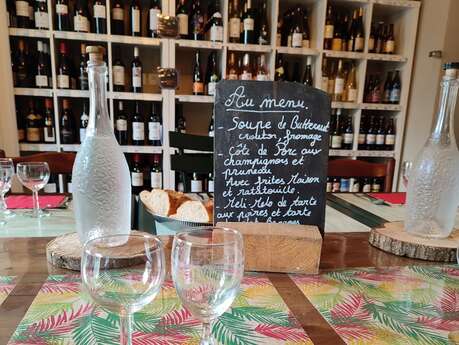 Au menu.
- Soupe de Butternut
croûton fromage
- Côte de Porc aux
champignons et
pruneau
Avec frites Maison
et ratatouille.
- Méli-Mélo de tarte
aux poires et tarte